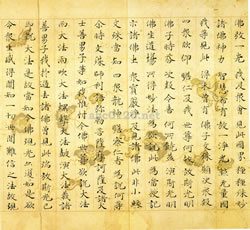 佛放一光 我及眾會 見此國界 種種殊妙
諸佛神力 智慧希有 放一淨光 照無量國
我等見此 得未曾有 佛子文殊 願決眾疑
四眾欣仰 瞻仁及我 世尊何故 放斯光明
佛子時答 決疑令喜 何所饒益 演斯光明
佛坐道場 所得妙法 為欲說此 為當授記
示諸佛土 眾寶嚴淨 及見諸佛 此非小緣
文殊當知 四眾龍神 瞻察仁者 為說何等
爾時文殊師利語彌勒菩薩摩訶薩及諸大士
善男子等如我惟忖今佛世尊欲說大法
雨大法雨吹大法螺擊大法鼓演大法義諸
善男子我於過去諸佛曾見此瑞放斯光已
即說大法是故當知今佛現光亦復如是欲
令眾生咸得聞知一切世間難信之法故現